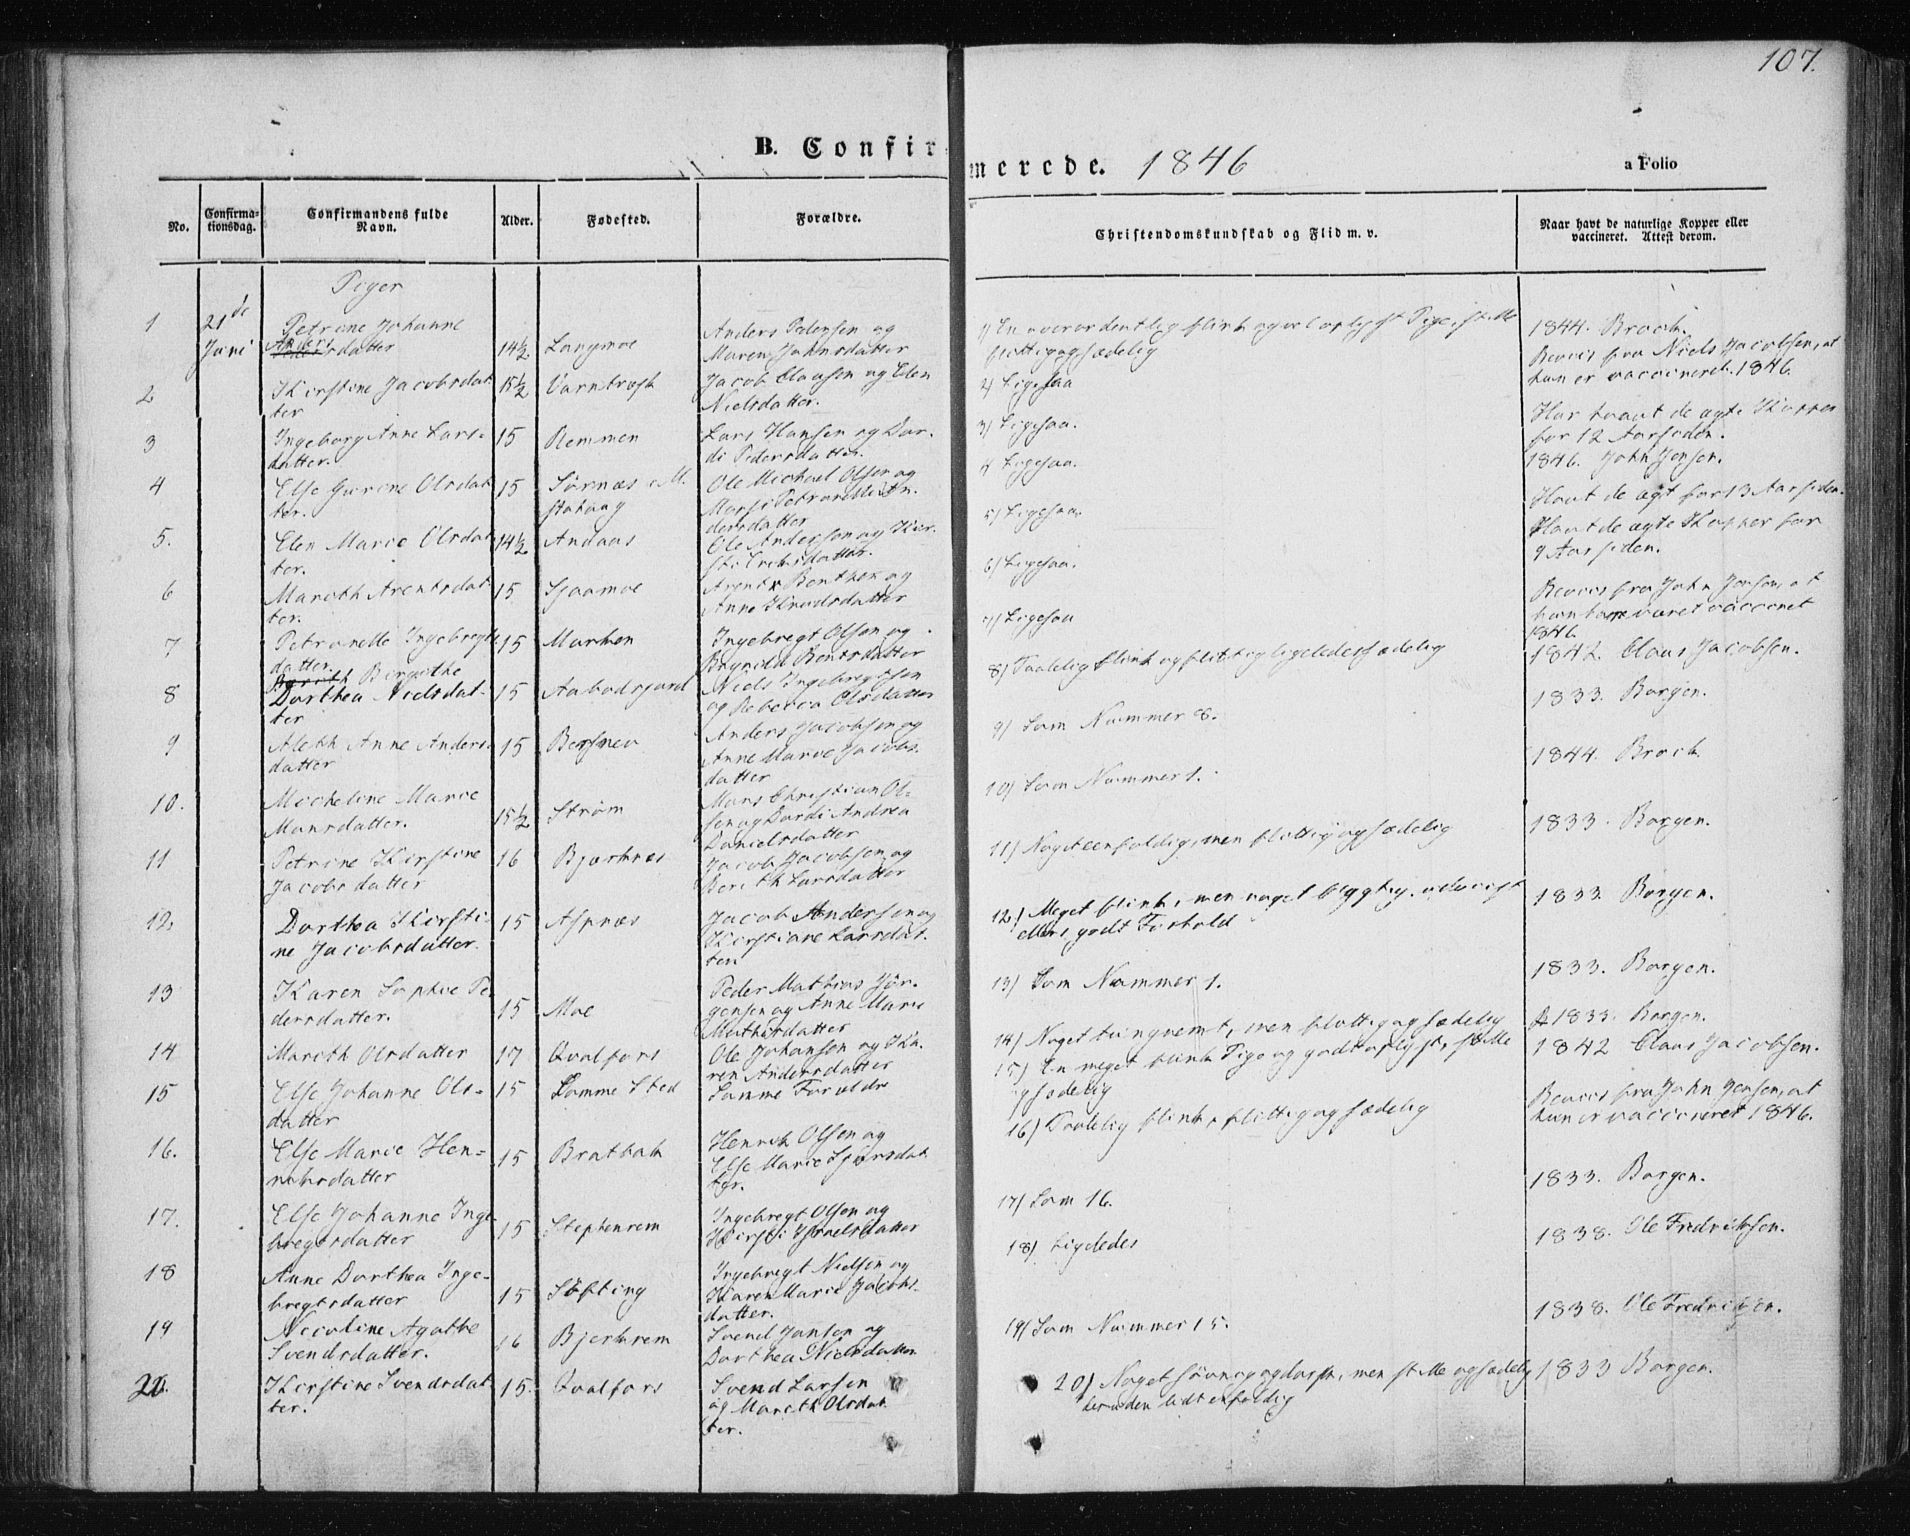 107.
B. Confirmerede. 1846
a Folio
No.
Confirma-
tionsdag.
Confirmandens fulde
Navn.
Alder.
Fødested.
Forældre.
Christendomskundskab og Flid m. v.
Naar havt de naturlige Kopper eller
vaccineret. Attest derom.
Piger
1 21de Juni Petrine Johanne
Anders datter 14½ Langmoe
Anders Pedersen og
Maren Johnsdatter
1) En overordentlig flink og vel oplyst Pige, stille
flittig og sædelig
1844. Broch.
2 Kirstine Jacobsdat
ter 15½ Varntresk
Jacob Clausen og Elen
Nielsdatter.
2) Ligesaa
Beviis fra Niels Jacobsen, at
hun er vaccineret. 1846.
3 Ingeborg Anne Lars-
datter. 15 Remmen
Lars Hansen og Dor-
di Pedersdatter.
3) Ligesaa.
Har havt de ægte Kopper
for 12 Aar siden.
4 Else Gurine Olsdat
ter. 15 Sørnæs
Ole Michael Olsen og
4) Ligesaa.
1846. John Jensen.
5. Elen Marie Olsdat
ter. 14½ Andaas
Ole Andersen og Kir-
sti Eriksdatter.
5) Ligesaa.
Havt de ægt for 13 Aar siden.
6 Mareth Arentsdat
ter. 15 Sjaamoe
Arent Bentsen og
Anne Knudsdatter
6) Ligesaa.
Havt de ægte Kopper for
9 Aar siden.
7 Petronelle Ingebregts
datter. 15 Marken
Ingebregt Olsen og
Brynild Bentsdatter
7) Ligesaa
Beviis fra John Jensen, at
hun har været vaccinet
1846
8 Birgithe
Dorthea Nielsdat-
ter 15 Aabodsjord
Niels Ingebregtsen
og Rebecca Olsdatter
8) Taalelig flink og flittig ligeledes sædelig
1842. Claus Jacobsen.
9 Aleth Anne Anders-
datter 15
Anders Jacobsen og
Anne Marie Jacobs-
datter
9) Som Nummer 8.
1833. Borgen.
10. Micheline Marie
Mansdatter. 15½ Strøm
Mons Christian Ol-
sen og Dordi Andrea
Danielsdatter
10) Som Nummer 1.
1844. Broch.
11 Petrine Kirstine
Jacobsdatter 16 Bjerknes
Jacob Jacobsen og
Berith Larsdatter
11) Noget eenfoldig, men flittig og sædelig
1833. Borgen.
12. Dorthea Kirsti-
ne Jacobsdatter. 15 Aspnæs
Jacob Andersen og
Kirstiane Larsdat-
ter
12.) Meget flink, men noget
ellers godt Forhold
1833. Borgen.
13 Karen Sophie Pe
dersdatter. 15 Moe
Peder Mathias Jør-
gensen og Anne Marie
Mathisdatter
13) Som Nummer 1.
1833. Borgen.
14 Mareth Olsdatter 17 Qvalfors
Ole Johansen og Ka-
ren Andersdatter
14) Noget tungnemt, men flittig og sædelig
1833. Borgen.
15 Else Johanne Ols-
datter 15 Samme Sted
Samme Forældre
15) En meget flink Pige og godt oplyst, stille
og sædelig
1842 Claus Jacobsen.
16. Else Marie Hen-
riksdatter 15 Bratbak
Henrik Olsen og
Else Marie
16) Taalelig flink, flittig og sædelig
Beviis fra John Jensen, at
hun er vaccineret 1846.
17. Else Johanne Inge
bregtsdatter 15 Stephenrem
Ingebregt Olsen og
Kirsti Israelsdatter
17) Som 16.
1833. Borgen.
18 Anne Dorthea Inge-
bregtsdatter 15 Søfting
Ingebregt Nielsen og
Karen Marie Jacobs-
datter.
18) Ligeledes
1838. Ole Fredriksen.
19 Nicoline Agathe
Svendsdatter. 16 Bjerkrem
Svend Jansen og
Dorthea Nielsdatter
19) Som Nummer 15.
1838. Ole Fredriksen.
20. Kirstine Svendsdat
ter. 15. Qvalfors
Svend Larsen
og Mareth Olsdat
ter.
20) Noget søvnig og dorsk, men stille og sædelig
desuden lidt enfoldig
1833 Borgen.